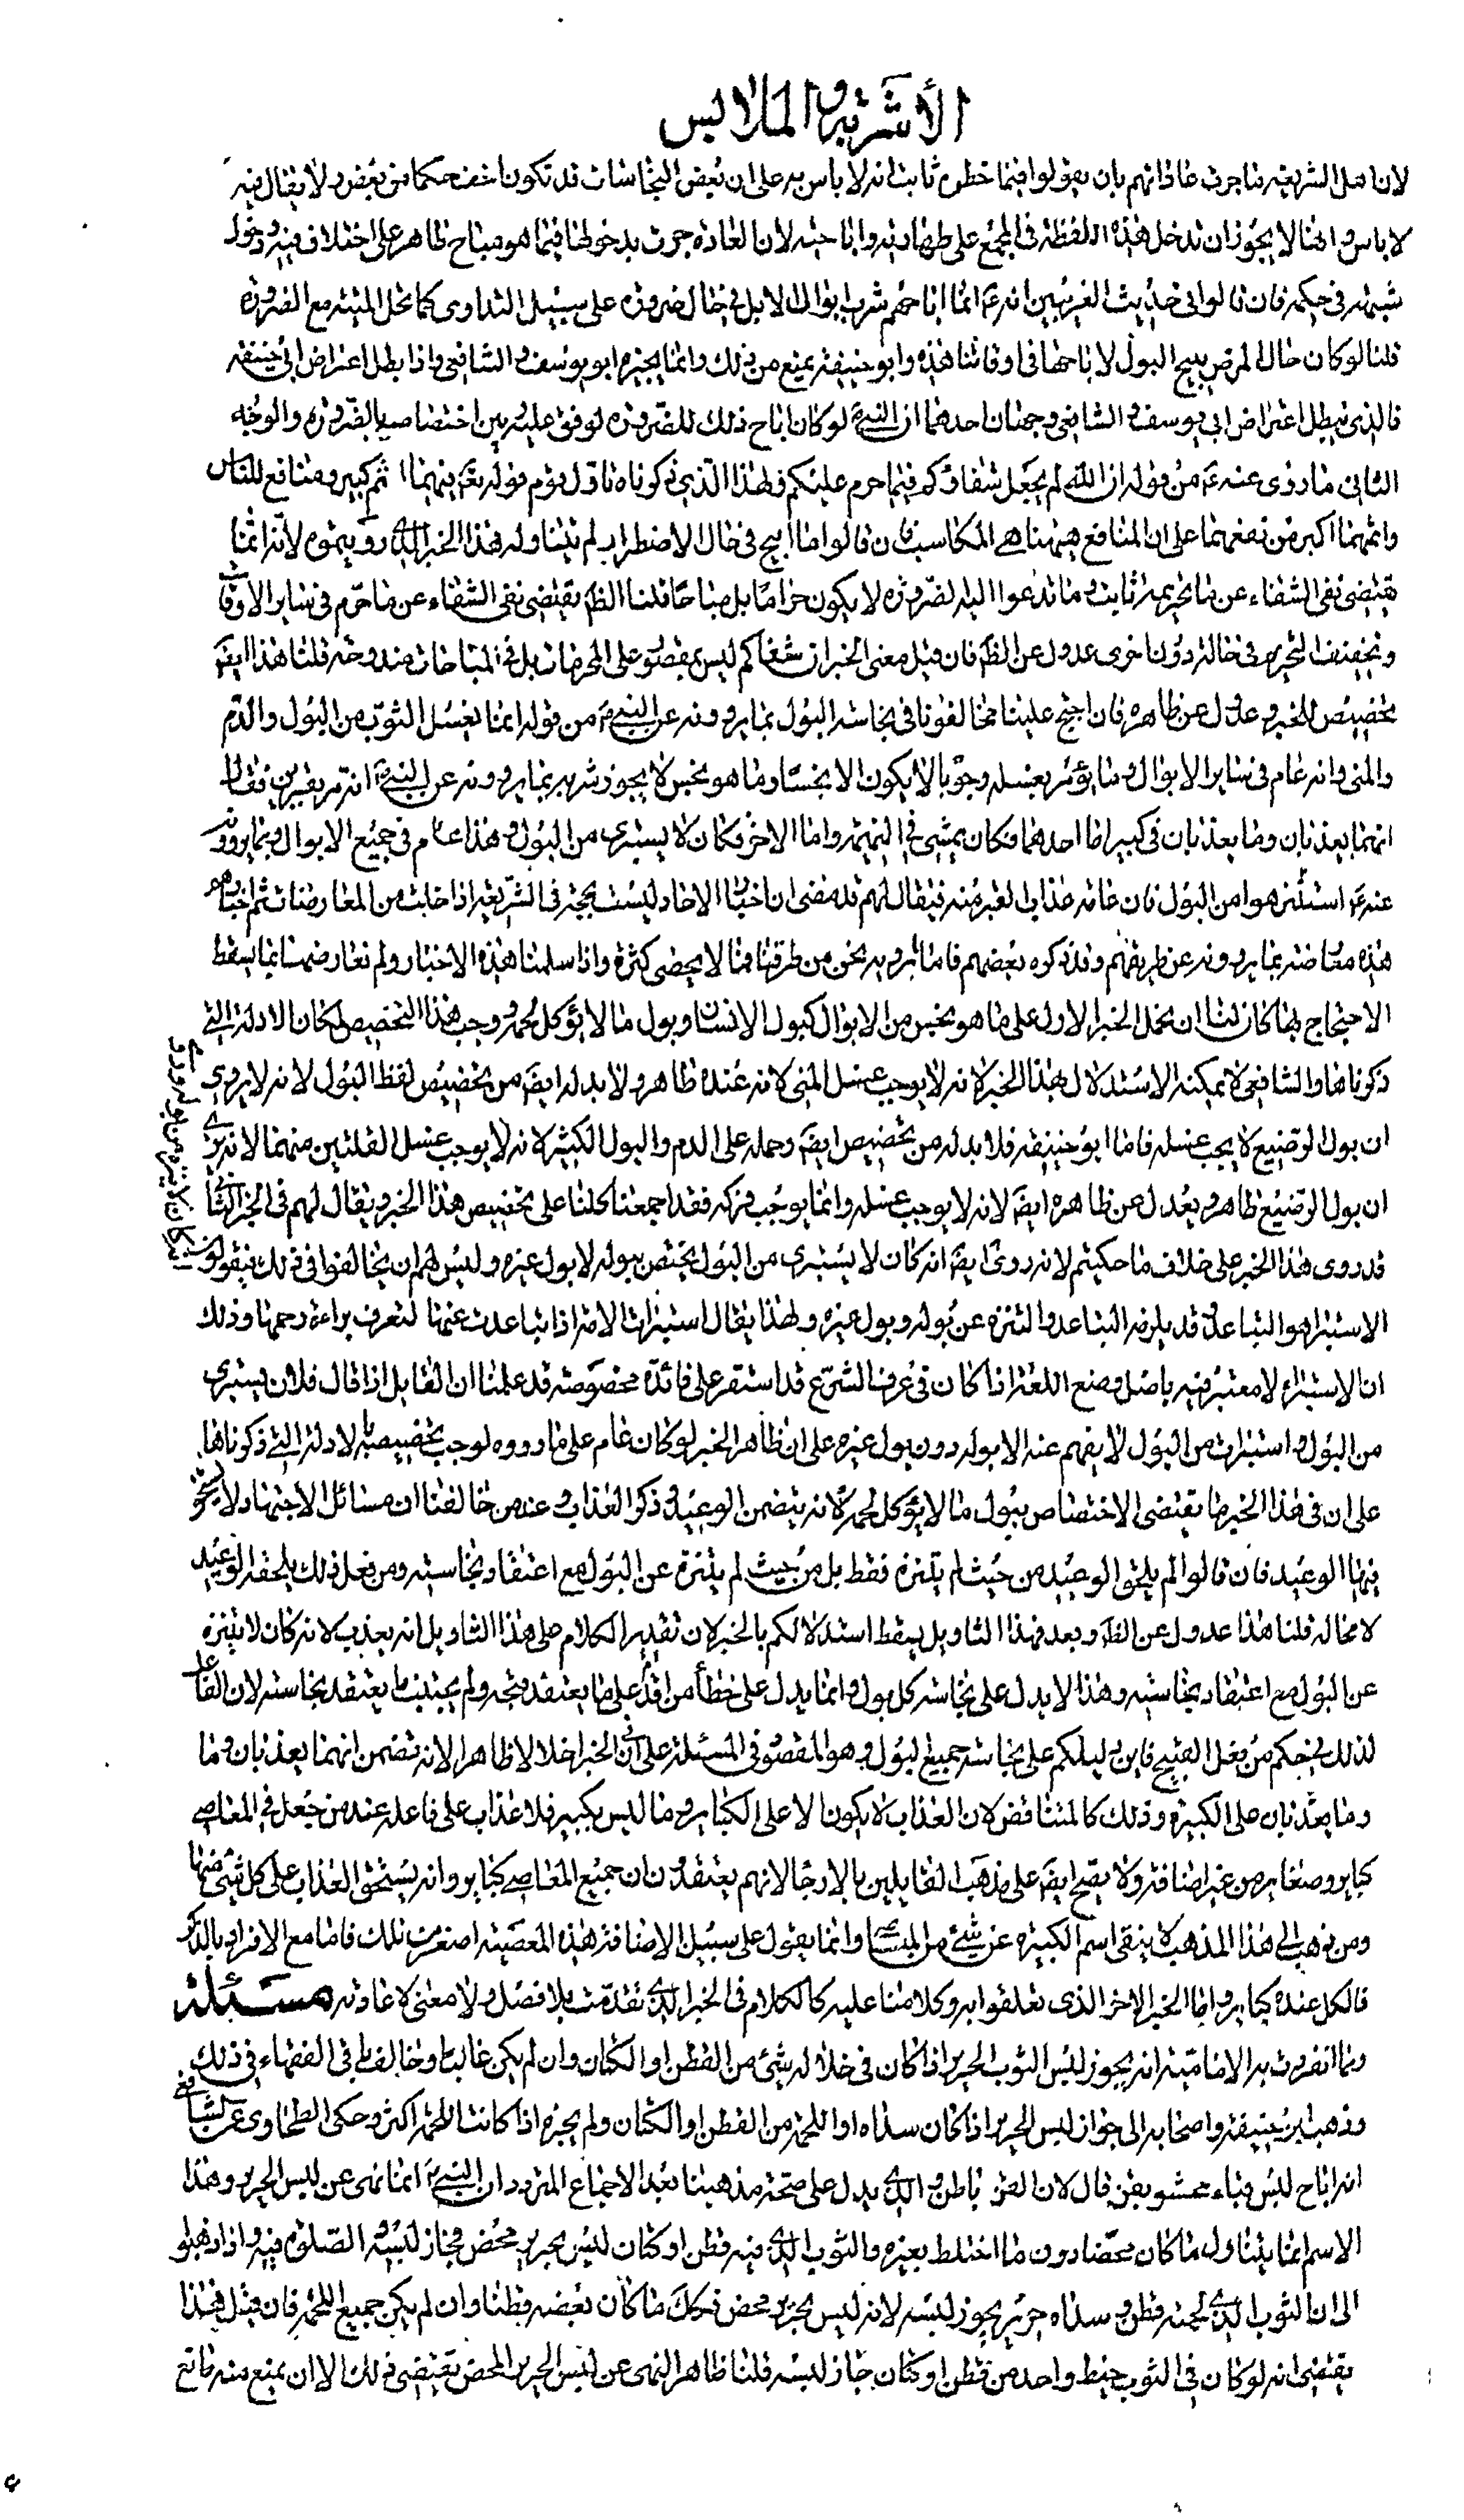 الأشربة و الملابس
لان اهل الشريعة ما جرت عاداتهم بان يقولوا فيما خطره ثابت انه لا باس به على ان بعض النجاسات قد تكون اخف حكما من بعض ولا يقال فيه
لا باس وايضا لا يجوز ان تدخل هذه اللفظة في المجمع على طهارته واباحته لان العادة جرت بدخولها فيما هو مباح ظاهر على اختلاف فيه ودخول
شبهته في حكمه فان قالوا في حديث العرنيين انه ع انما اباحهم شرب ابوال الابل في حال ضرورة على سبيل التداوى كما تحل الميتة مع الضرورة
قلنا لو كان حال المرض يبيح البول لاباحها في اوقاتنا هذه وابو حنيفة يمنع من ذلك وانما يجيزه ابو يوسف و الشافعى واذا بطل اعتراض ابى حنيفة
فالذى يبطل اعتراض ابى يوسف و الشافعى وجهان احدهما ان النبى ص لو كان اباح ذلك للضرورة لوقف عليه وبين اختصاصه بالضرورة والوجه
الثانى ما روى عنه ع من قوله ان الله لم يجعل شفاؤكم فيما حرم عليكم ولهذا الذى ذكرناه تاول قوم قوله تع فيهما اثم كبير ومنافع للناس
واثمهما اكبر من نفعهما على ان المنافع ههنا هي المكاسب فان قالوا ما ابيح في حال الاضطرار لم يتناوله هذا الخبر الذى رويتموه لانه انما
يقتضى نفى الشفاء عن ما تحريمه ثابت وما تدعوا اليه الضرورة لا يكون حراما بل مباحا قلنا الظم يقتضى نفى الشفاء عن ما حرم في ساير الاوقات
وتخفيف التحريم في حالة دون اخرى عدول عن الظم فان قيل معنى الخبر ان شفاكم ليس بمقصور على المحرمات بل في المباحات مندوحة قلنا هذا ايضم
تخصيص للخبر وعدول عن ظاهره فان احتج علينا مخالفونا في نجاسة البول بما يروونه عن النبى ص من قوله انما يغسل الثوب من البول والدم
والمنى وانه عام في ساير الابوال وما يؤمر بغسله وجوبا لا يكون الا نجسا وما هو نجس لا يجوز شربه بما يروونه عن النبى ص انه مر بقبرين فقال
انهما يعذبان وما يعذبان في كبير اما احدهما فكان يمشى في النميمة واما الاخر فكان لا يستبرى من البول وهذا عام في جميع الابوال وبما يروونه
عنه ع استنزهوا من البول فان عامة عذاب القبر منه فيقال لهم قد مضى ان اخبار الاحاد ليست بحجة في الشريعة اذا خلت من المعارضات ثم اخباركم
هذه معارضة بما يروونه عن طريقهم وقد ذكره بعضهم فاما ما نرويه نحن من طرقنا فما لا يحصى كثرة واذا سلمنا هذه الاخبار ولم نعارضها بما يسقط
الاحتجاج بها كان لنا ان نحمل الخبر الاول على ما هو نجس من الابوال كبول الانسان وبول ما لا يؤكل لحمه ووجب هذا التخصيص لمكان الادلة التى
ذكرناها والشافعى لا يمكنه الاستدلال بهذا الخبر لانه لا يوجب غسل المنى لانه عنده طاهر ولا بد له ايضم من تخصيص لفظ البول لانه لا يروى
ان بول الرضيع لا يجب غسله فاما ابو حنيفة فلا بد له من تخصيص ايضم وحمله على الدم والبول الكثير لانه لا يوجب غسل القليلين منهما لانه يرى
ان بول الرضيع طاهر ويعدل عن ظاهره ايضم لانه لا يوجب غسله وانما يوجب فركه فقد اجمعنا كلنا على تخصيص هذا الخبر ويقال لهم في الخبر الثانى
قد روى هذا الخبر على خلاف ما حكيتم لانه روى ايضم انه كان لا يستبرى من البول يختص ببوله لا بول غيره وليس لهم ان يخالفوا في ذلك فيقولوا
الاستبرا هو التباعد وقد يلزمه التباعد والتنزه عن بوله وبول غيره ولهذا يقال استبرات الامة اذا تباعدت عنها لتعرف براءة رحمها وذلك
ان الاستبراء لا معتبر فيه باصل وضع اللغة اذا كان في عرف الشرع قد استقر على فائدة مخصوصة قد علمنا ان القايل اذا قال فلان يستبرى
من البول واستبرات من البول لا يفهم عنه الا بوله دون بول غيره على ان ظاهر الخبر لو كان عام على ما رووه لوجب تخصيصه بالادلة التى ذكرناها
على ان في هذا الخبر ما يقتضى الاختصاص ببول ما لا يؤكل لحمه لانه يتضمن الوعيد وذكر العذاب وعند من خالفنا ان مسائل الاجتهاد لا يستحق
فيها الوعيد فان قالوا لم يلحق الوعيد من حيث لم يتنزه فقط بل من حيث لم يتنزه عن البول مع اعتقاد نجاسته ومن فعل ذلك يلحقه الوعيد
لا محالة قلنا هذا عدول عن الظم وبعد فهذا التاويل يسقط استدلالكم بالخبر لان تقدير الكلام على هذا التاويل انه يعذب لانه كان لا يتنزه
عن البول مع اعتقاد نجاسته وهذا لا يدل على نجاسة كل بول وانما يدل على خطأ من اقدم على ما يعتقد قبحه ولم يجتنب ما يعتقد نجاسته لان الفاعل
لذلك في حكم من فعل القبيح فاين دليلكم على نجاسة جميع البول وهو المقصود في المسئلة على ان في الخبر اخلالا ظاهرا لانه تضمن انهما يعذبان وما
وما يعذبان على الكبيرة وذلك كالمتناقض لان العذاب لا يكون الا على الكباير وما ليس بكبير فلا عذاب على فاعله عند من جعل في المعاصى
كباير وصغاير من غير اضافة ولا يصح ايضم على مذهب القايلين بالارجا لانهم يعتقدون ان جميع المعاصى كباير وانه يستحق العذاب على كل شئ منها
ومن ذهب الى هذا المذهب لا ينفى اسم الكبيرة عن شئ من المعاصى وانما يقول على سبيل الاضافة هذه المعصية اصغر من تلك فاما مع الافراد بالذكر
فالكل عنده كباير واما الخبر الاخر الذى تعلقوا به وكلامنا عليه كالكلام في الخبر الذى تقدمه بلا فصل ولا معنى لاعادته مسئلة
ومما انفردت به الامامية انه يجوز لبس الثوب الحرير اذا كان في خلاله شئ من القطن او الكتان وان لم يكن غالبا وخالف باقى الفقهاء في ذلك
وذهب ابو حنيفة واصحابه الى جواز لبس الحرير اذا كان سداه او اللحمة من القطن او الكتان ولم يجزه اذا كانت اللحمة اكثر وحكى الطحاوى عن الشافعى
انه اباح لبس قباء محشو بقز قال لان القز باطن والذى يدل على صحة مذهبنا بعد الاجماع المتردد ان النبى ص انما نهى عن لبس الحرير وهذا
الاسم انما يتناول ما كان محضا دون ما اختلط بغيره والثوب الذى فيه قطن او كتان ليس بحرير محض فجاز لبسه و الصلوة فيه واذا ذهبوا
الى ان الثوب الذى لحمته قطن و سداه حرير يجوز لبسه لانه ليس بحرير محض فكذلك ما كان بعضه قطنا وان لم يكن جميع اللحمة فان قيل فهذا
يقتضى انه لو كان في الثوب خيط واحد من قطن او كتان جاز لبسه قلنا ظاهر النهى عن لبس الحرير المحض يقتضى ذلك الا ان يمنع منه مانع